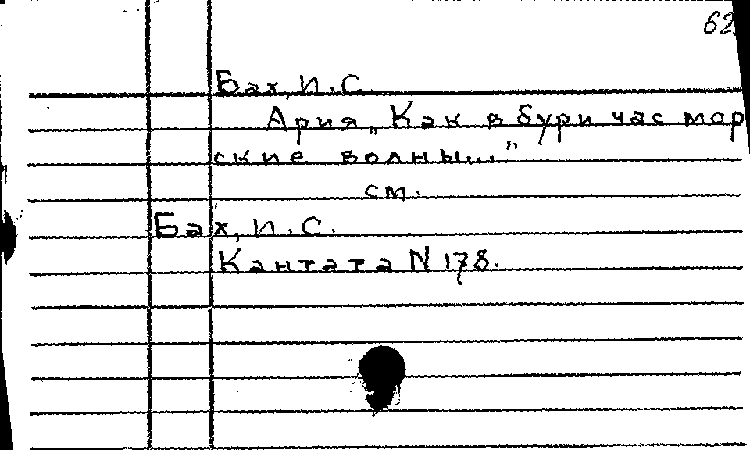 62
Бах, И.С.
Ария „Как в бури час мор
ские волны..."
см.
Бах, И.С.
Кантата N 178.